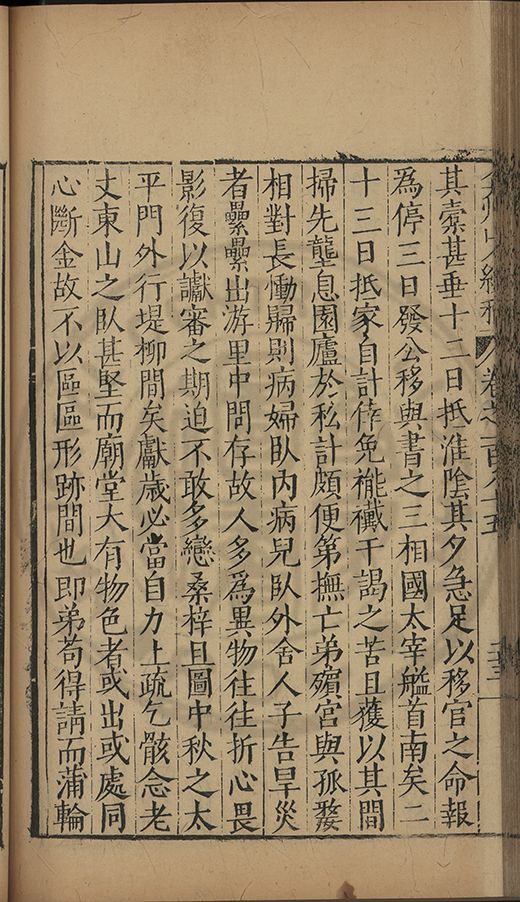 其橐甚垂十二日抵淮陰其夕急足以移官之命報
為停三日發公移與書之三相國太宰艦首南矣二
十三日抵家自計倖免褦襶干謁之苦且獲以其間
掃先壟息園廬於私計頗便第撫亡弟殯宮與孤嫠
相對長慟歸則病婦臥內病兒臥外舍人子告旱災
者纍纍出游里中問存故人多為異物往往折心畏
影復以讞審之期迫不敢多戀桑梓且圖中秋之太
平門外行堤柳間矣獻歲必當自力上疏乞骸念老
丈東山之臥甚堅而廟堂大有物色者或出或處同
心斷金故不以區區形跡間也即弟苟得請而蒲輪